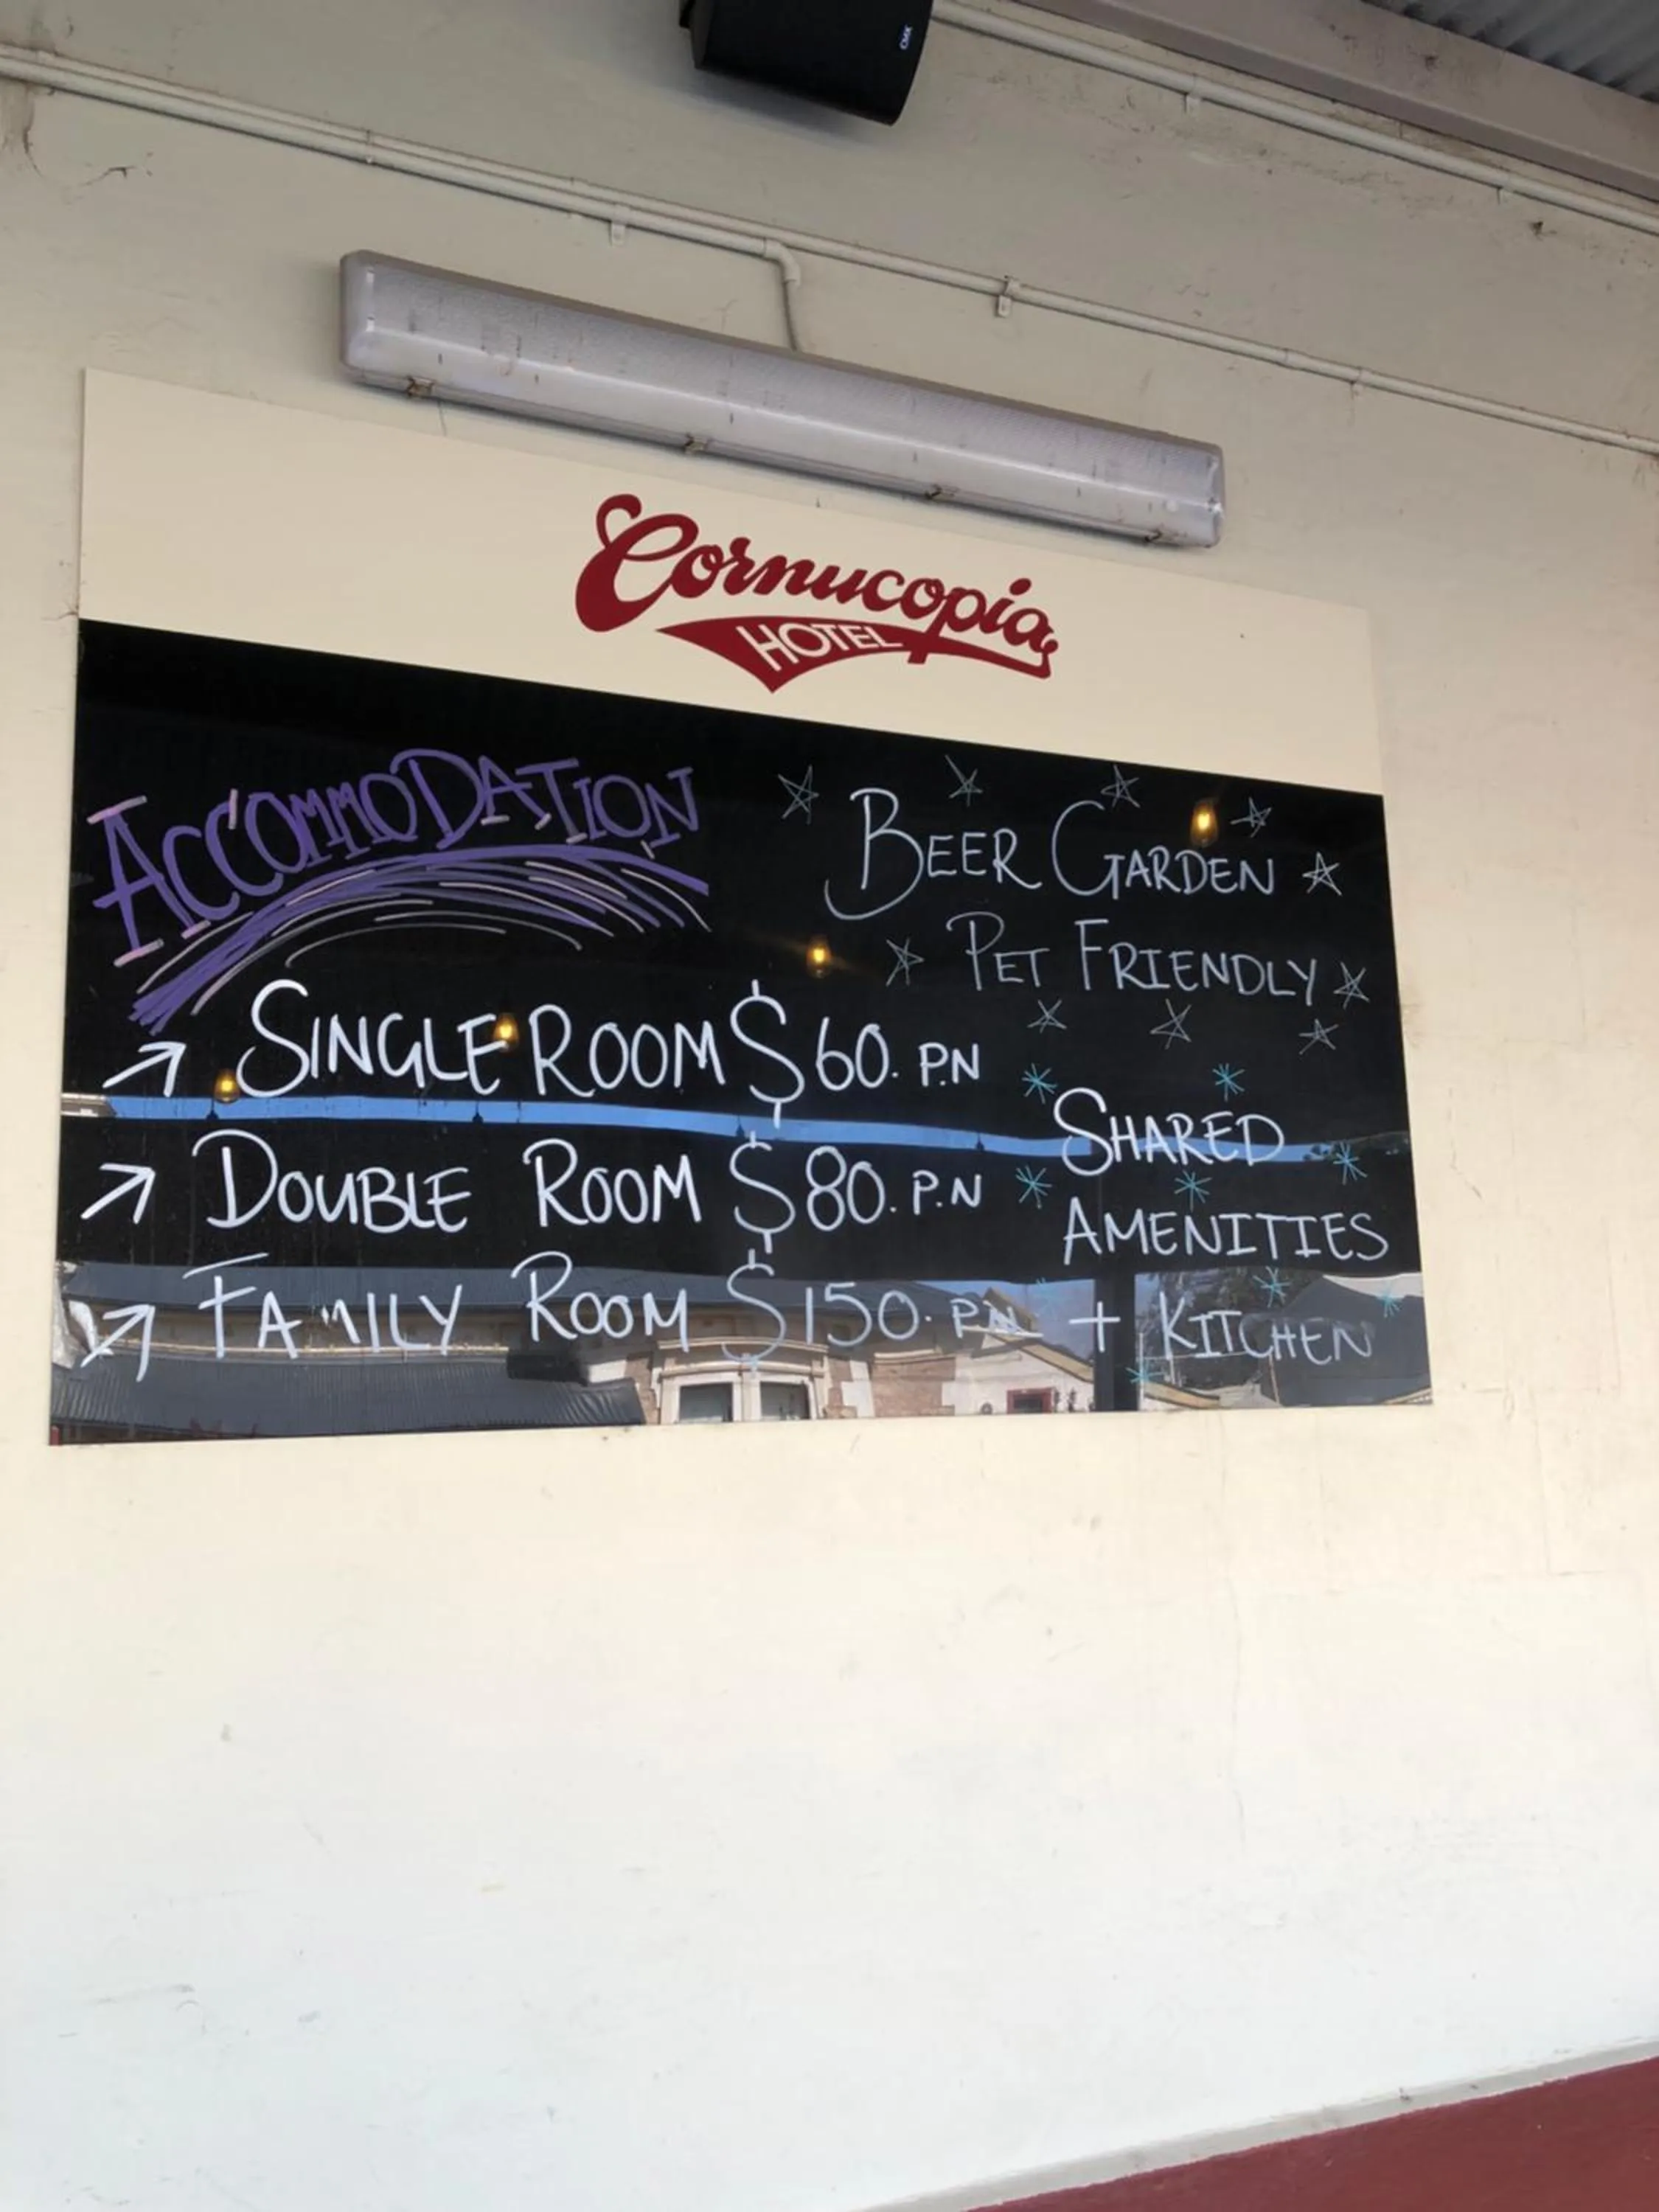 CMX
Cornucopia
HOTEL
ACCOMMODATION
BEER GARDEN
PET FRIENDLY
SINGLE ROOM $60. P.N
DOUBLE ROOM $80. P.N
FAMILY ROOM $150. P.N
SHARED
AMENITIES
+ KITCHEN